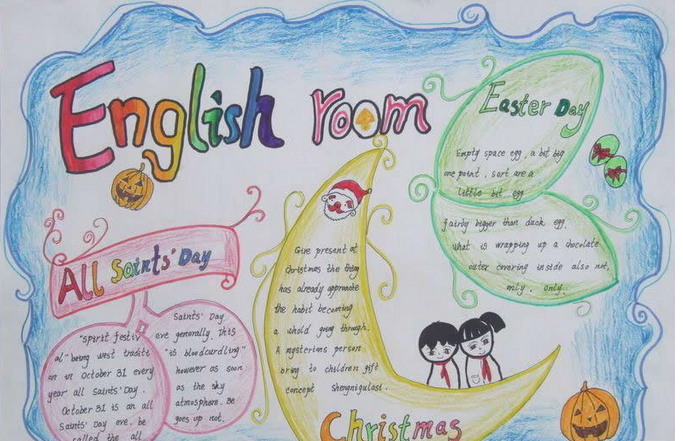 English room
Easter Day
Empty space egg, a bit big
one point, sort are a
little bit egg
fairly bigger than duck egg.
What is wrapping up a chocolate
outer covering inside also not,
only. only.
All Saints' Day
"spirit festiv
al" being west traditi
on in October 31 every
year all Saints' Day.
October 31 is an all
Saints' Day eve. be
called the all
Saints' Day
eve generally. This
"is bloodcurdling"
however as soon
as the sky
atmosphere. Be
goes up not.
Give present of
Christmas the thing
has already approximate
the habit becoming
a whold going through.
A mysterious person
bring to children gift
concept Shengnigulasi.
Christmas